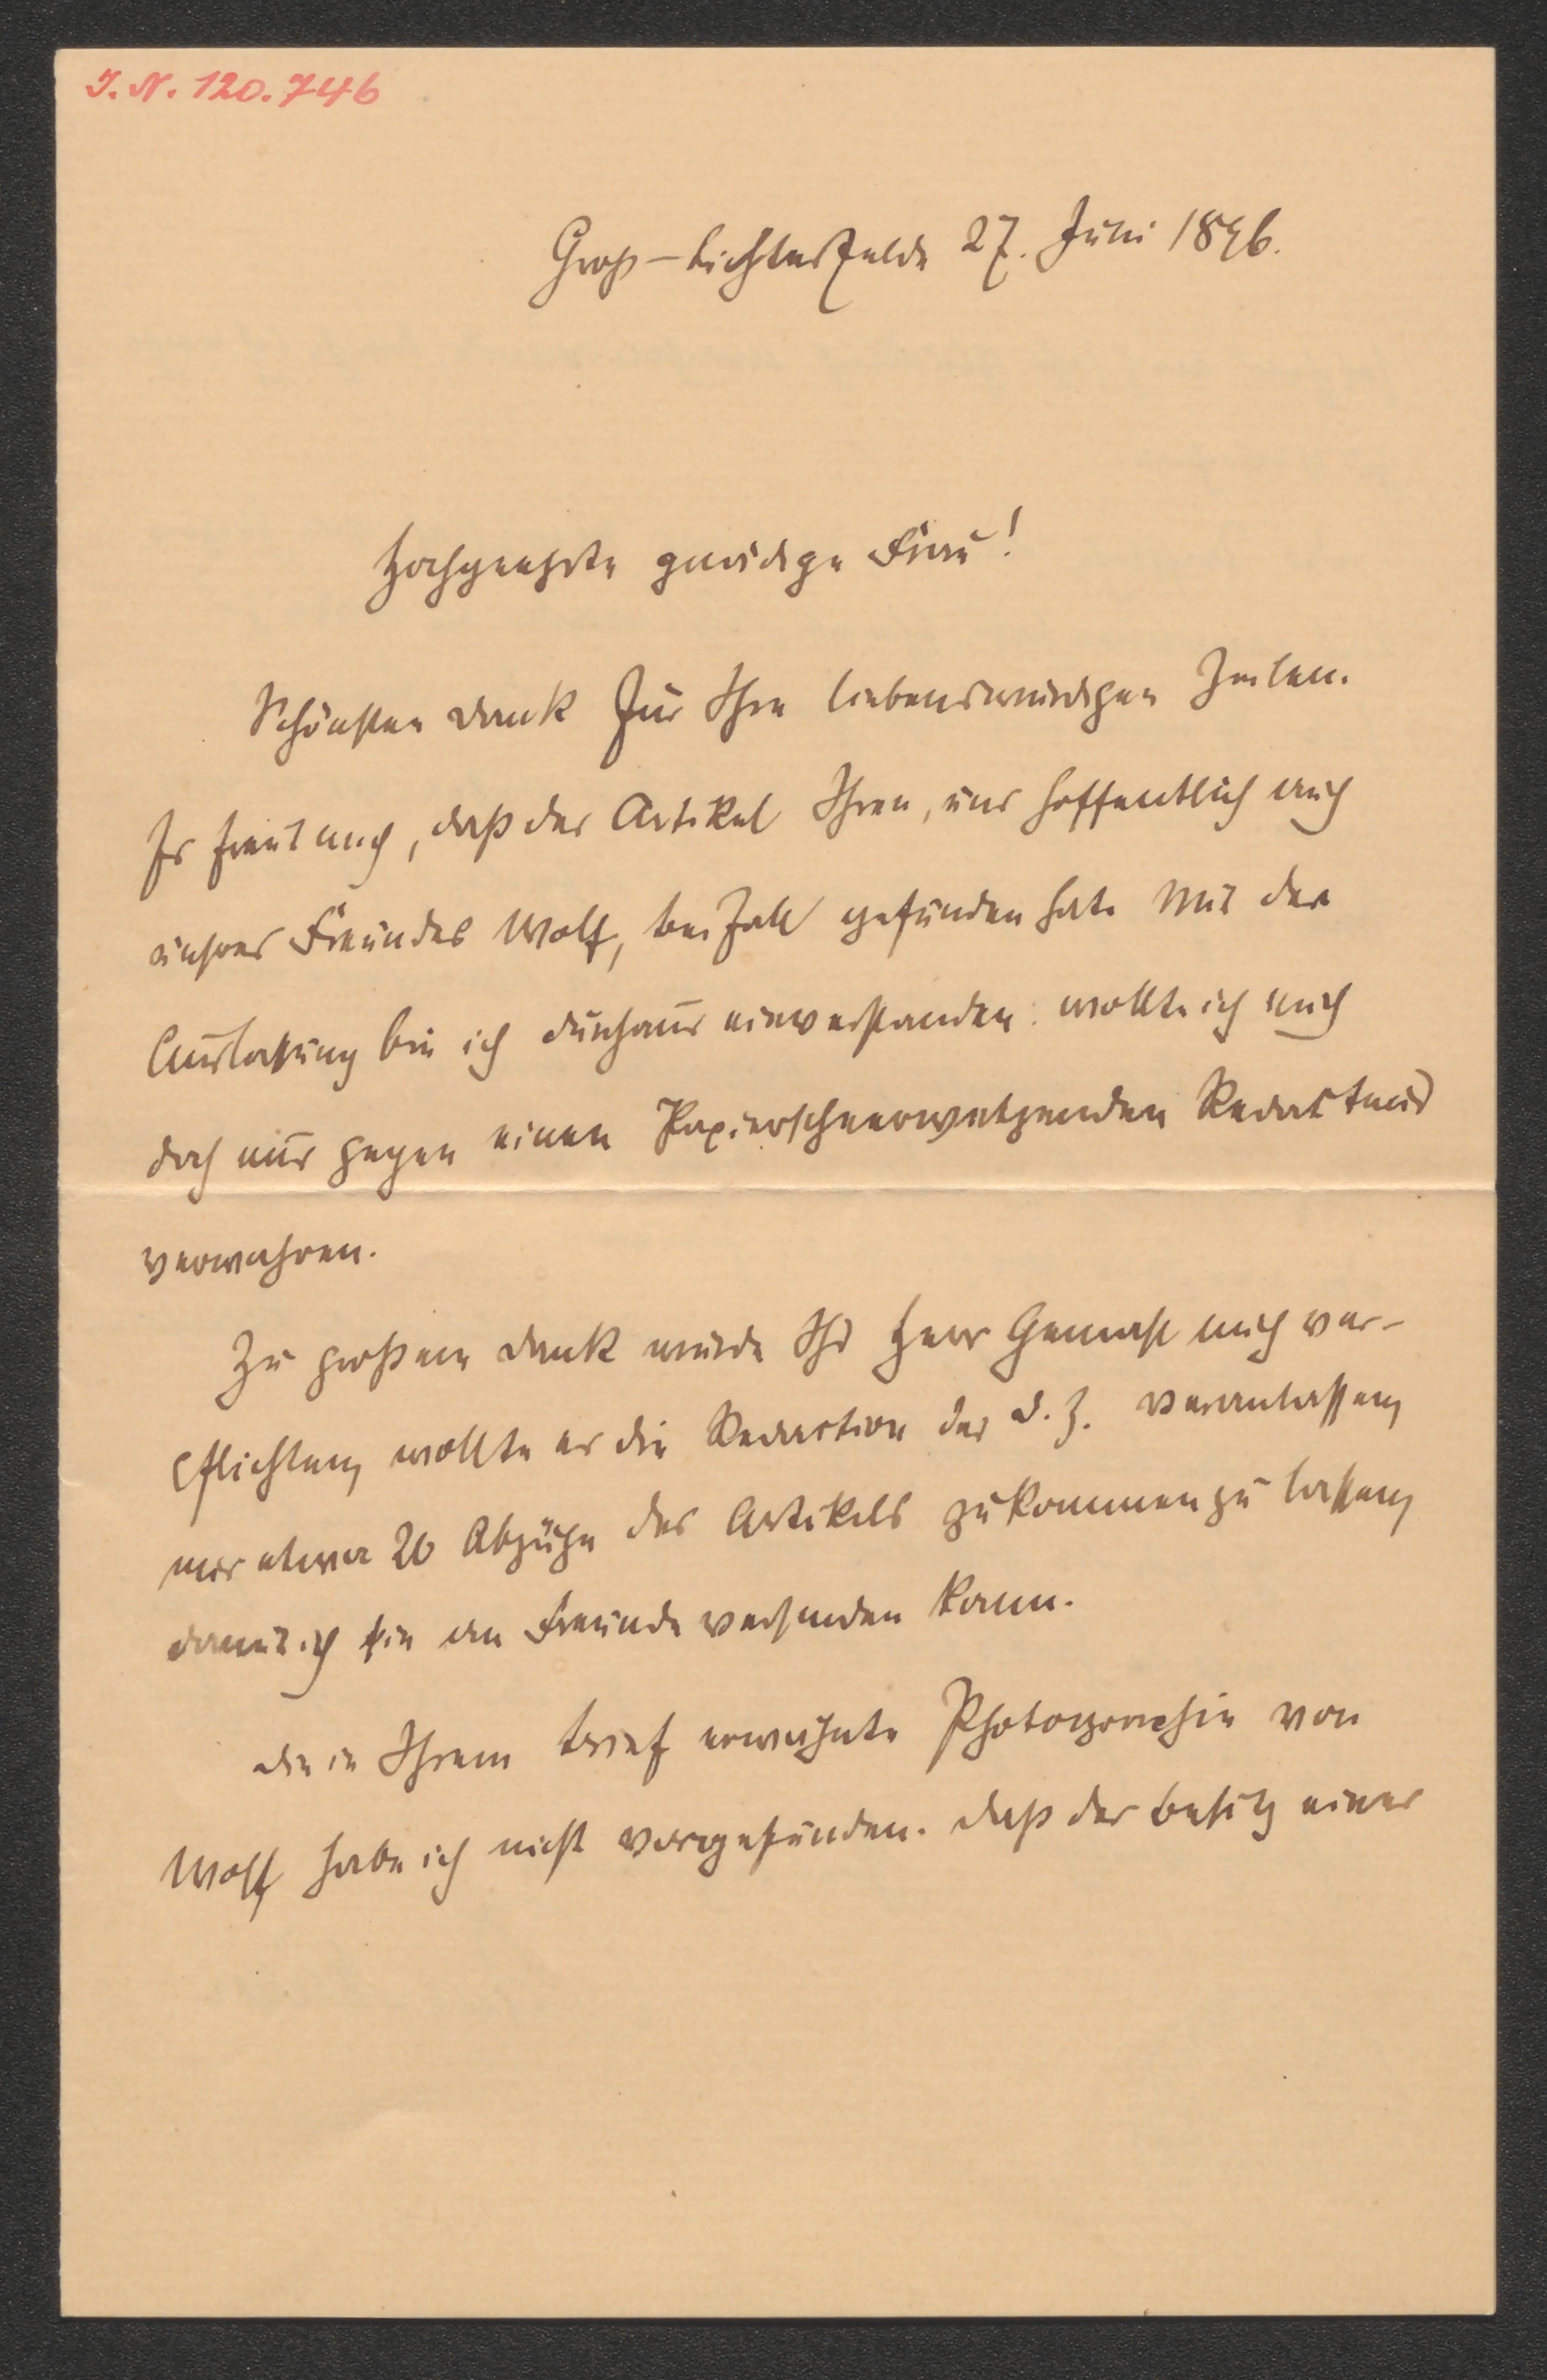 I. N. 120.746
Groß-Lichterfelde 27. Juni 1896.
Hochgeehrte gnädige Frau!
Schönsten Dank für Ihre liebenswürdigen Zeilen.
Es freut mich, daß der Artikel Ihren, und hoffentlich auch
unsres Freundes Wolf, Beifall gefunden hat. Mit der
Auslassung bin ich durchaus einverstanden: wollte ich mich
doch nur gegen einen Papierscheerewetzenden Redakteur
verwahren.
Zu großem Dank würde Ihr Herr Gemahl mich ver-
pflichten, wollte er die Redaction der D. Z. veranlassen,
mir etwa 20 Abzüge des Artikels zukommen zu lassen,
damit ich sie an Freunde versenden kann.
Die in Ihrem Brief erwähnte Photographie von
Wolf habe ich nicht vorgefunden. Daß der Besitz eines